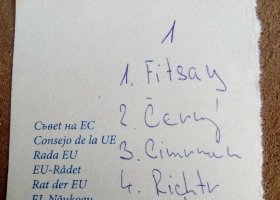 1
1. Fitsay
2. Černý
3. Cimrman
4. Richtr
Съвет на ЕС
Consejo de la UE
Rada EU
EU-Rådet
Rat der EU
EL Nõukogu